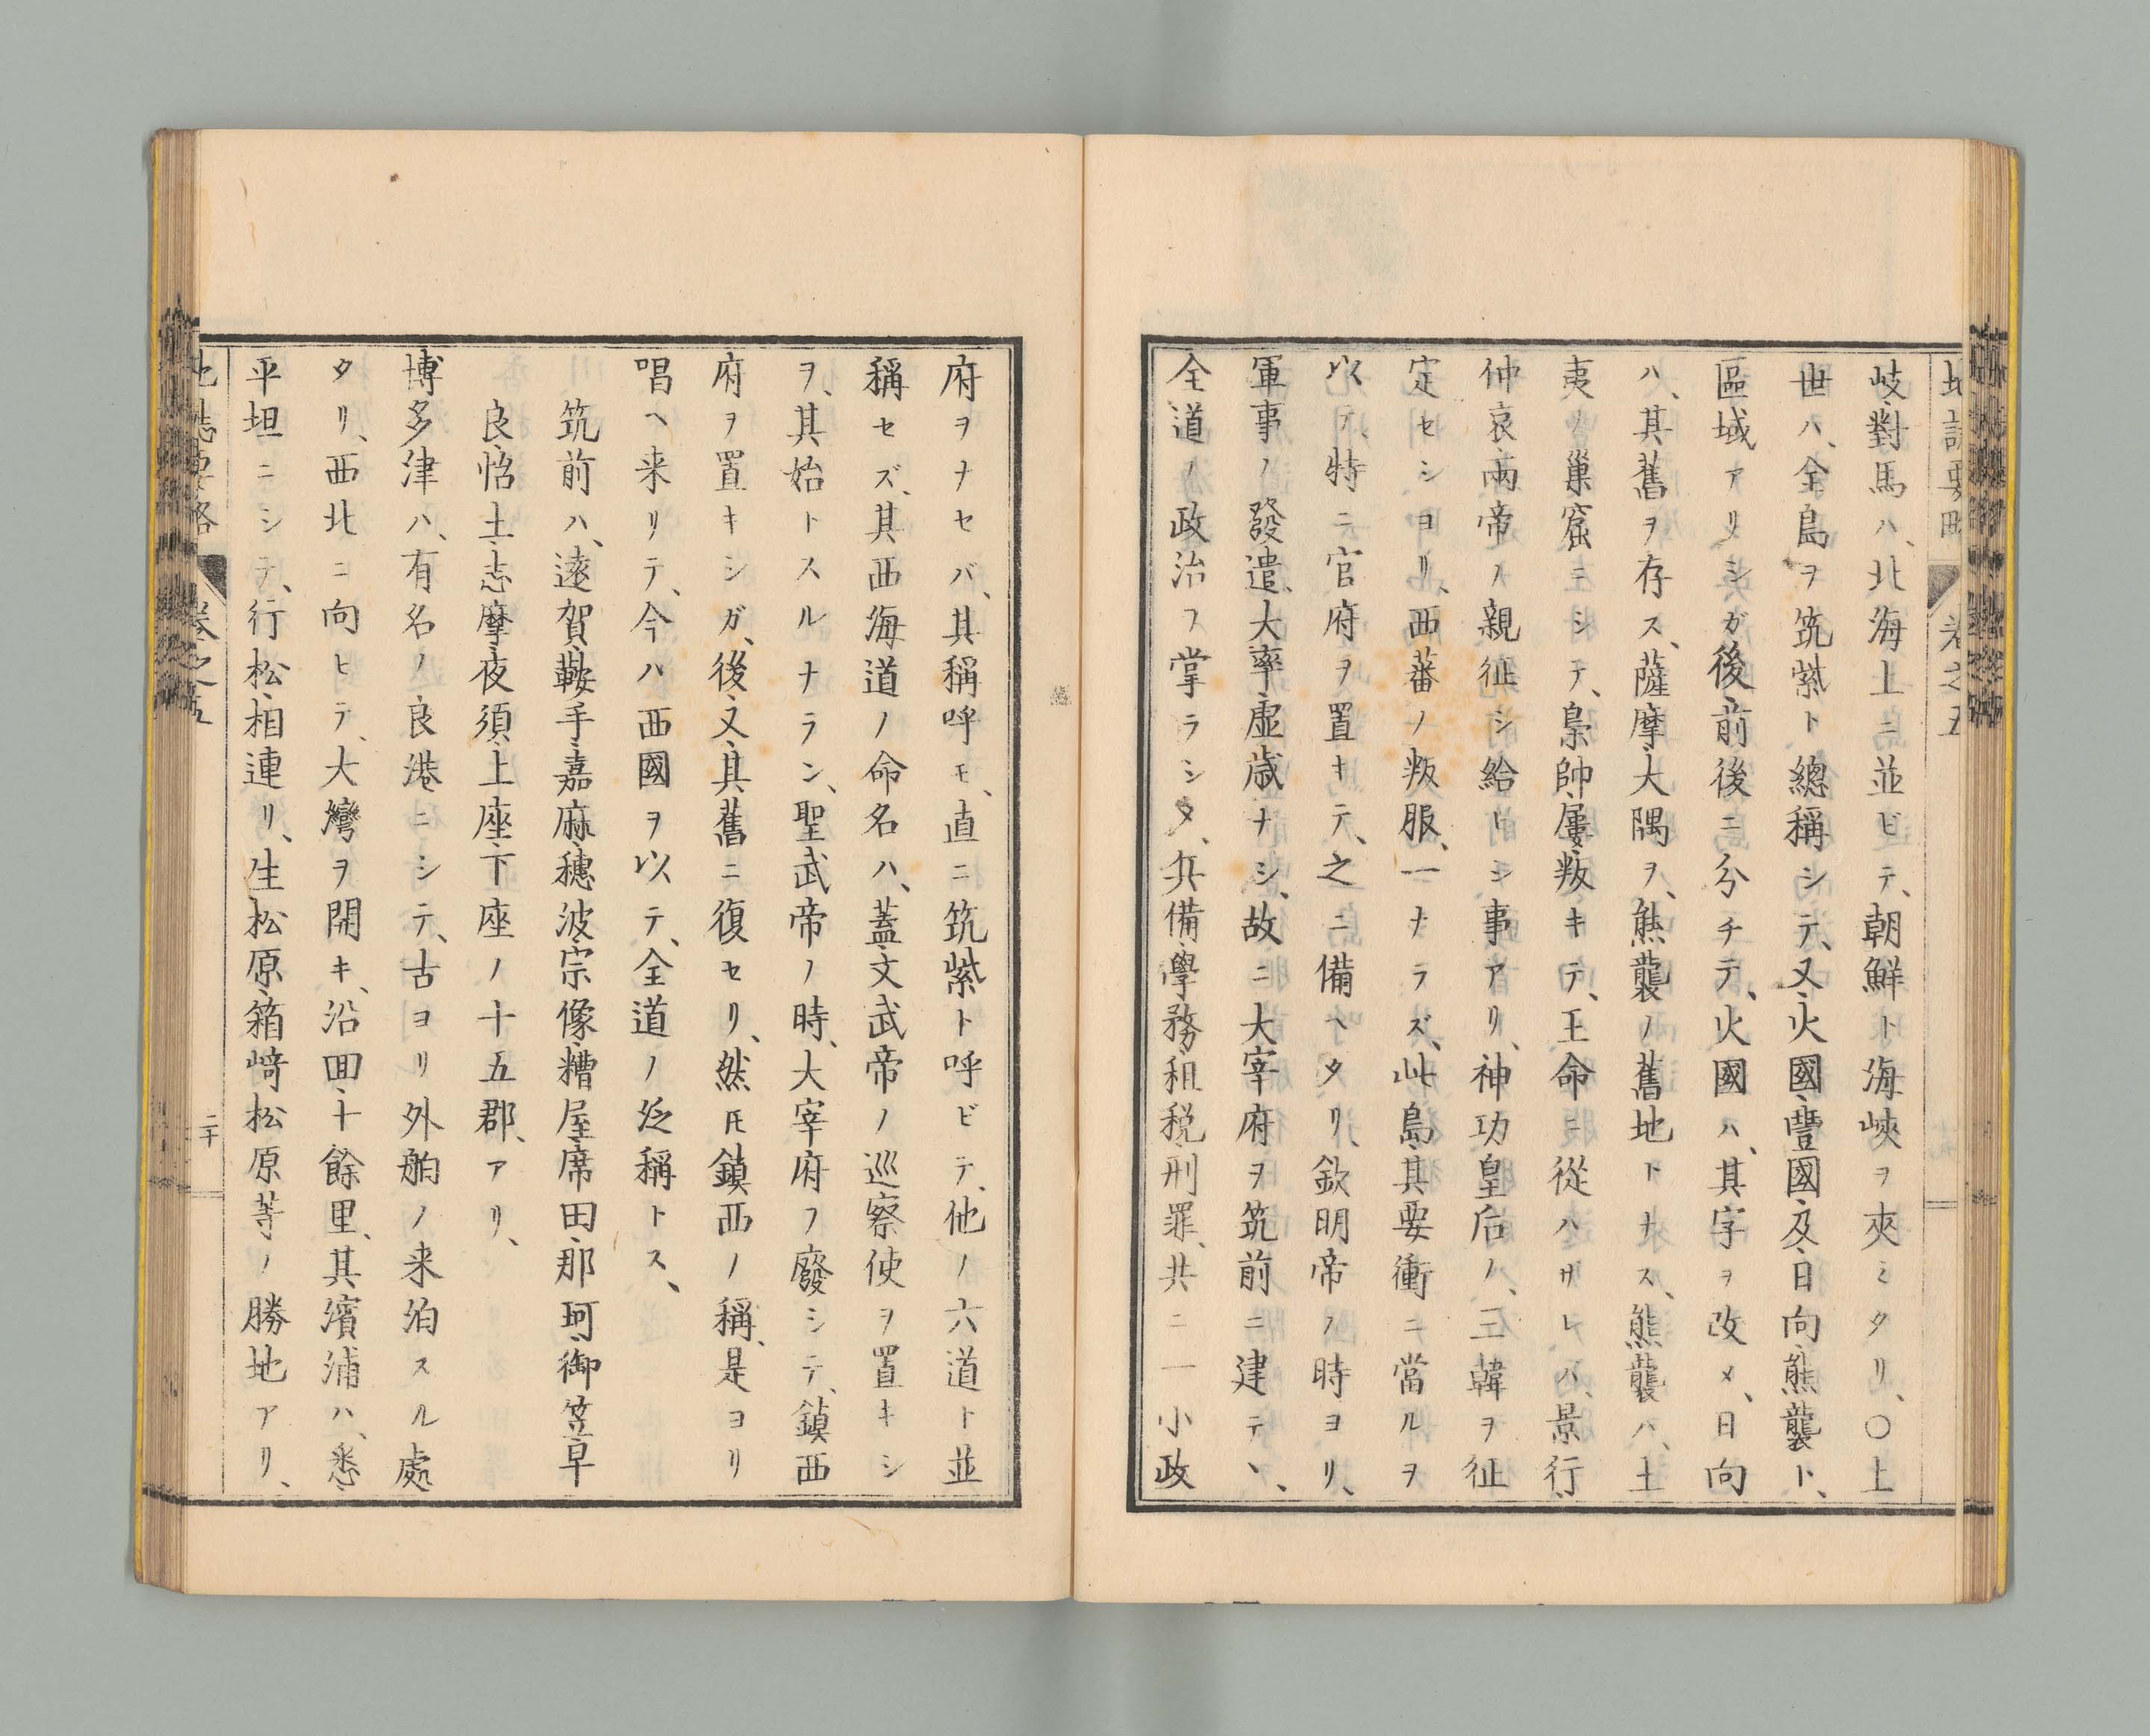 岐、對馬ハ、北海上ニ並ビテ、朝鮮ト海峽ヲ夾ミタリ、〇上
世ハ、全島ヲ筑紫ト總稱シテ、又、火國、豐國、及、日向、熊襲ト、
區域アリシガ、後、前後ニ分チテ、火國ハ、其字ヲ改メ、日向
ハ、其舊ヲ存ス、薩摩、大隅ヲ、熊襲ノ舊地トナス、熊襲ハ、土
夷ノ巢窟ニシテ、梟帥、屢叛キテ、王命ニ從ハザレバ、景行、
仲哀、兩帝ノ親征シ給ヒシ事アリ、神功皇后ノ、三韓ヲ征
定セシヨリ、西蕃ノ叛服、一ナラズ、此島、其要衝ニ當ルヲ
以テ、特ニ官府ヲ置キテ、之ニ備ヘタリ、欽明帝ノ時ヨリ、
軍事ノ發遣、大率虛歳ナシ、故ニ大宰府ヲ筑前ニ建テヽ、
全道ノ政治ヲ掌ラシメ、兵備、學務、租税、刑罪、共ニ一小政
地誌要略 卷之五
府ヲナセバ、其稱呼モ、直ニ筑紫ト呼ビテ、他ノ六道ト並
稱セズ、其西海道ノ命名ハ、蓋、文武帝ノ巡察使ヲ置キシ
ヲ、其始トスルナラン、聖武帝ノ時、大宰府ヲ廢シテ、鎮西
府ヲ置キシガ、後、又、其舊ニ復セリ、然𪜈鎮西ノ稱、是ヨリ
唱ヘ来リテ、今ハ西國ヲ以テ、全道ノ泛稱トス、
筑前ハ、遠賀、鞍手、嘉麻、穗波、宗像、糟屋、席田、那珂、御笠、早
良、怡土、志摩、夜須、上座、下座ノ十五郡アリ、
博多津ハ、有名ノ良港ニシテ、古ヨリ外舶ノ来泊スル處
タリ、西北ニ向ヒテ、大灣ヲ開キ、沿囬、十餘里、其濱浦ハ、悉、
平坦ニシテ、行松、相連リ、生松原、箱﨑松原等ノ勝地アリ、
地誌要略 卷之五 二十